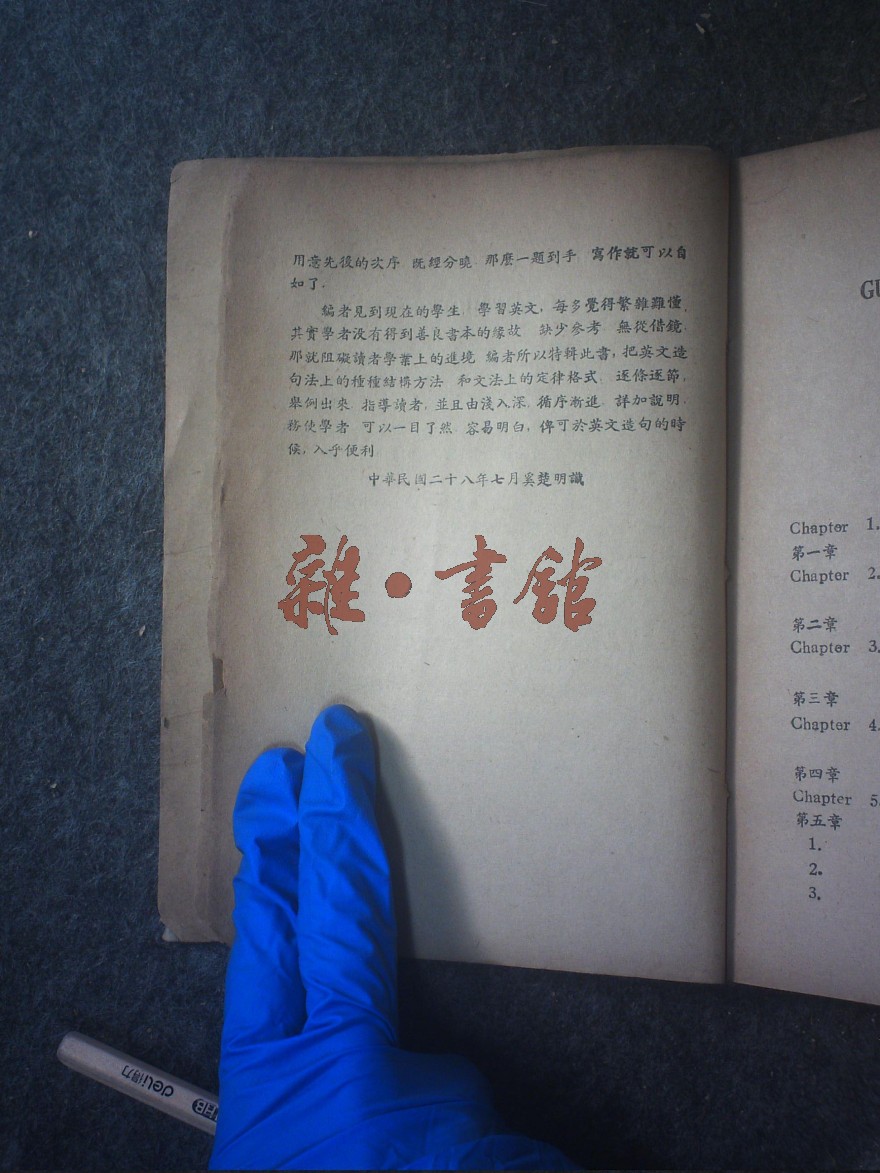 用意先後的次序 既經分曉 那麽一題到手 寫作就可以自
如了.
編者見到現在的學生, 學習英文, 每多覺得繁雜難懂,
其實學者没有得到善良書本的緣故 缺少參考 無從借鏡.
那就阻礙讀者學業上的進境 編者所以特輯此書, 把英文造
句法上的種種結構方法 和文法上的定律格式 逐條逐節,
舉例出來 指導讀者, 並且由淺入深, 循序漸進, 詳加說明,
務使學者 可以一目了然 容易明白, 俾可於英文造句的時
候, 入乎便利
中華民國二十八年七月奚楚明識
雜·書舘
GU
Chapter 1.
第一章
Chapter 2.
第二章
Chapter 3.
第三章
Chapter 4.
第四章
Chapter 5.
第五章
1.
2.
3.
deli得力
HB